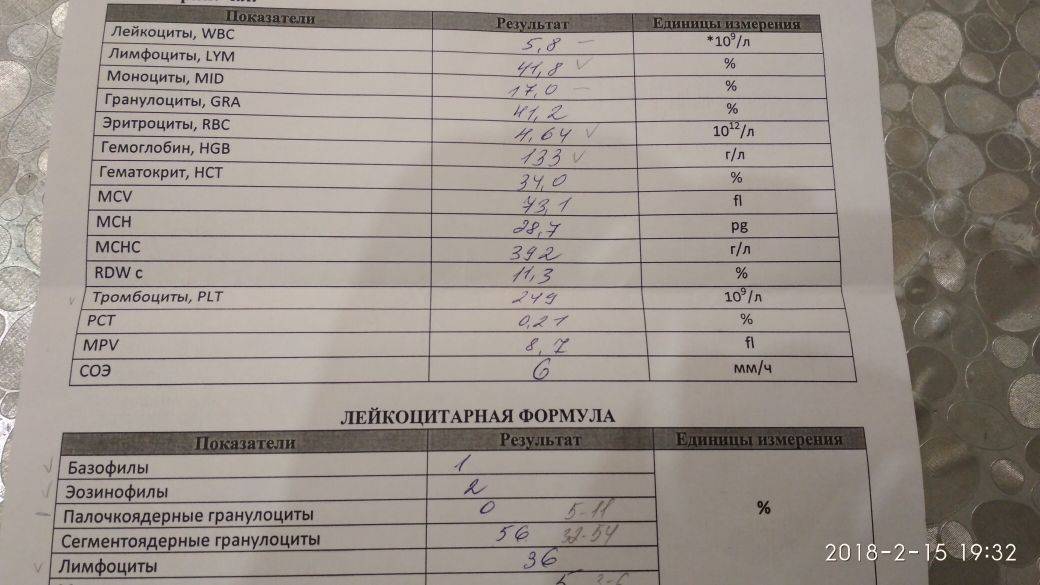 Показатели Результат Единицы измерения
Лейкоциты, WBC 5,8 – *10⁹/л
Лимфоциты, LYM 41,8 ✓ %
Моноциты, MID 17,0 – %
Гранулоциты, GRA 41,2 %
Эритроциты, RBC 4,64 ✓ 10¹²/л
Гемоглобин, HGB 133 ✓ г/л
Гематокрит, HCT 34,0 %
MCV 73,1 fl
MCH 28,7 pg
MCHC 392 г/л
RDW c 11,3 %
Тромбоциты, PLT 249 10⁹/л
PCT 0,21 %
MPV 8,7 fl
СОЭ 6 мм/ч
ЛЕЙКОЦИТАРНАЯ ФОРМУЛА
Показатели Результат Единицы измерения
Базофилы 1
Эозинофилы 2
Палочкоядерные гранулоциты 0 5-11 %
Сегментоядерные гранулоциты 56 32-54
Лимфоциты 36
5
2018-2-15 19:32